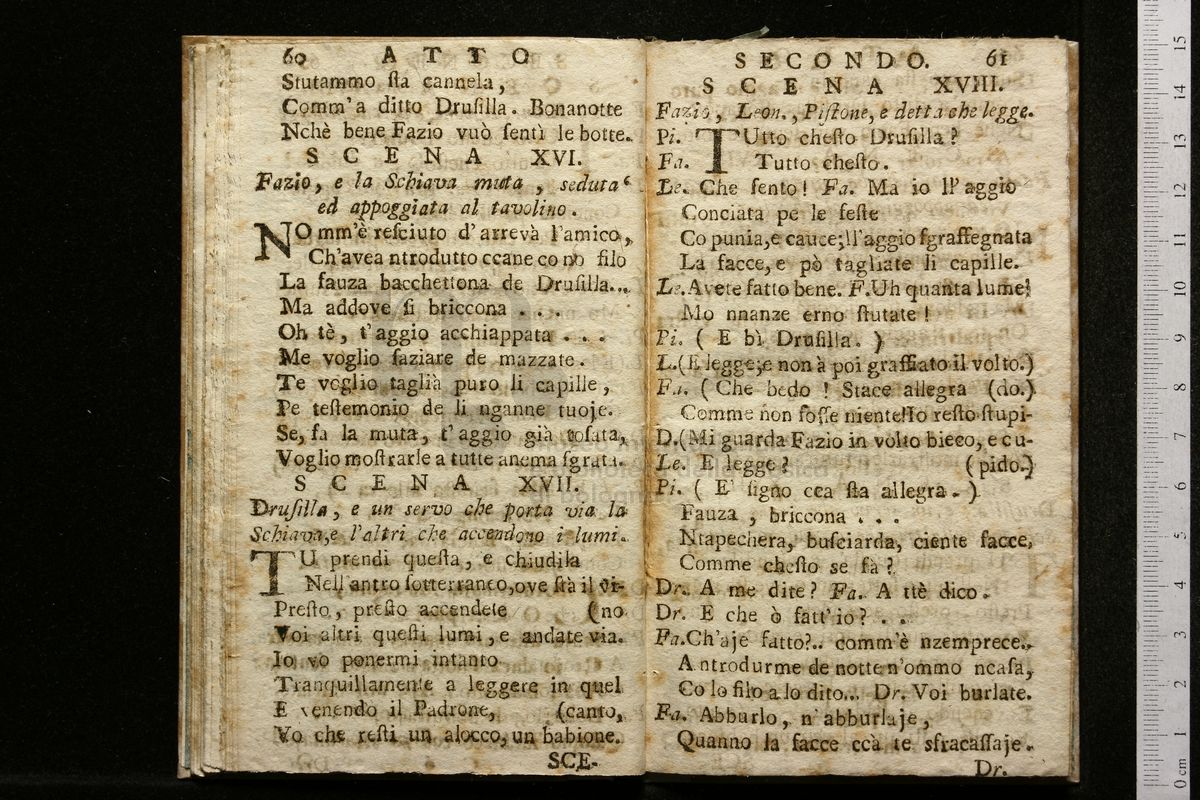 60 ATTO
Stutammo sta cannela,
Comm'a ditto Drusilla. Bonanotte
Nchè bene Fazio vuò sentì le botte.
SCENA XVI.
Fazio, e la Schiava muta, seduta
ed appoggiata al tavolino.
NO mm'è resciuto d'arrevà l'amico,
Ch'avea ntrodutto ccane co no filo
La fauza bacchettona de Drusilla...
Ma addove si briccona . . .
Oh tè, t'aggio acchiappata . . .
Me voglio saziare de mazzate.
Te voglio taglià puro li capille,
Pe testemonio de li nganne tuoje.
Se, fa la muta, t'aggio già tosata,
Voglio mostrarle a tutte anema sgrata.
SCENA XVII.
Drusilla, e un servo che porta via la
Schiava, e l'altri che accendono i lumi.
TU prendi questa, e chiudila
Nell'antro sotterraneo, ove stà il vi-
Presto, presto accendete (no
Voi altri questi lumi, e andate via.
Io vo ponermi intanto
Tranquillamente a leggere in quel
E venendo il Padrone, (canto,
Vo che resti un alocco, un babione.
SCE-
SECONDO. 61
SCENA XVIII.
Fazio, Leon., Pistone, e detta che legge.
Pi. TUtto chesto Drusilla?
Fa. Tutto chesto.
Le. Che sento! Fa. Ma io ll'aggio
Conciata pe le feste
Co punia, e cauce; ll'aggio sgraffegnata
La facce, e pò tagliate li capille.
Le. Avete fatto bene. F. Uh quanta lume!
Mo nnanze erno stutate!
Pi. ( E bì Drusilla. )
L. (E legge; e non à poi graffiato il volto.)
Fa. ( Che bedo! Stace allegra (do.)
Comme non fosse niente! Io resto stupi-
D. (Mi guarda Fazio in volto bieco, e cu-
Le. E legge? (pido.)
Pi. ( E' signo cca sta allegra. )
Fauza, briccona . . .
Ntapechera, busciarda, ciente facce,
Comme chesto se fà?
Dr. A me dite? Fa. A ttè dico.
Dr. E che ò fatt'io? . .
Fa. Ch'aje fatto?.. comm'è nzemprece..
A ntrodurme de notte n'ommo ncasa,
Co lo filo a lo dito... Dr. Voi burlate.
Fa. Abburlo, n'abburlaje,
Quanno la facce ccà te sfracassaje.
Dr.
15
14
13
12
11
10
9
8
7
6
5
4
3
2
1
0 cm